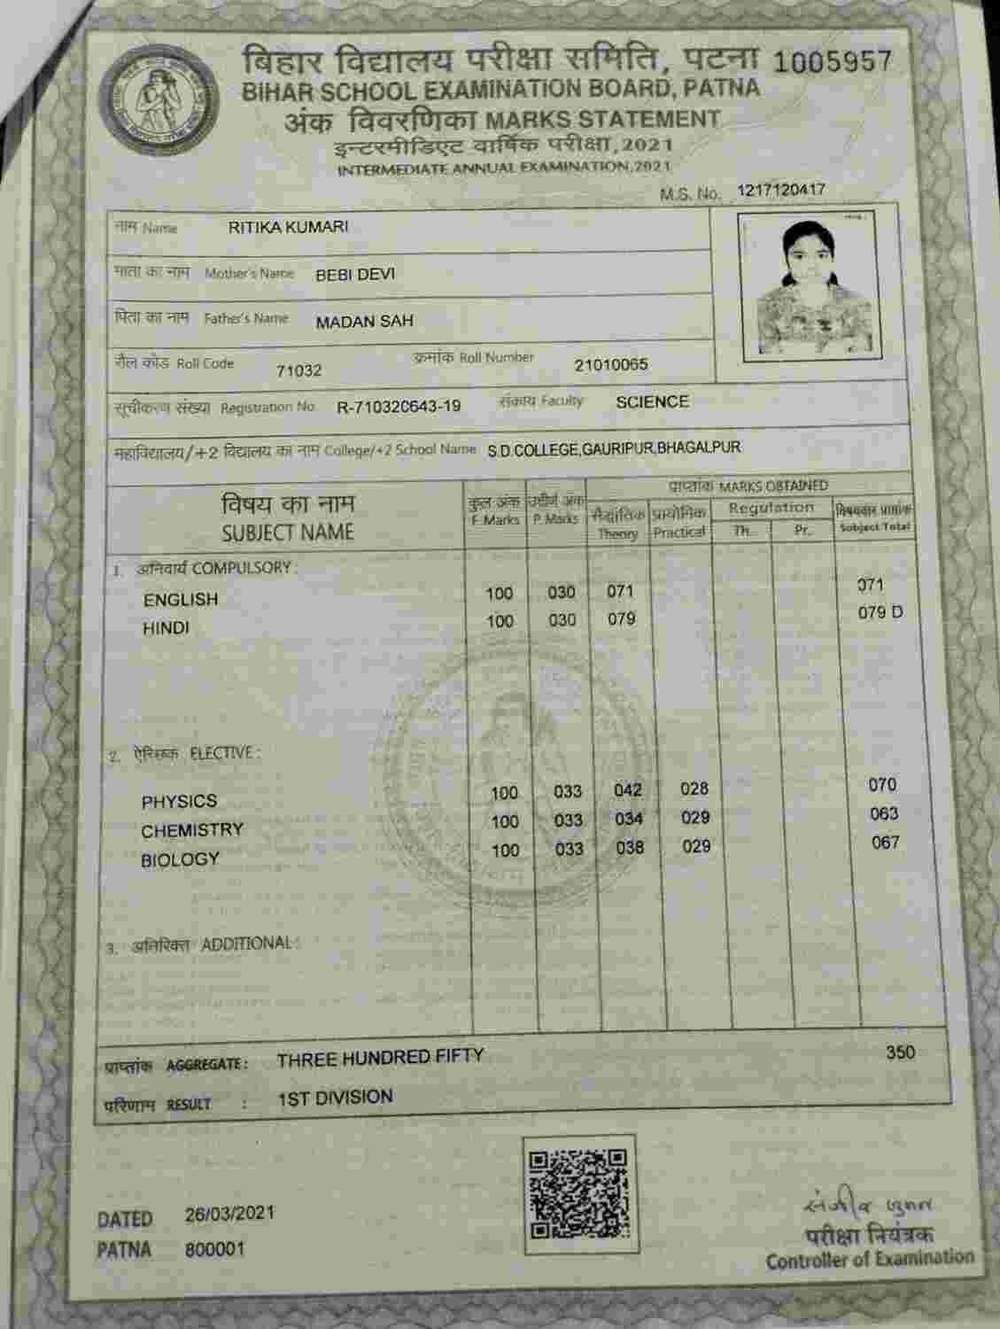 बिहार विद्यालय परीक्षा समिति, पटना 1005957
BIHAR SCHOOL EXAMINATION BOARD, PATNA
अंक विवरणिका MARKS STATEMENT
इन्टरमीडिएट वार्षिक परीक्षा, 2021
INTERMEDIATE ANNUAL EXAMINATION, 2021
M.S. No. 1217120417
नाम Name RITIKA KUMARI
माता का नाम Mother's Name BEBI DEVI
पिता का नाम Father's Name MADAN SAH
रौल कोड Roll Code 71032 क्रमांक Roll Number 21010065
सूचीकरण संख्या Registration No. R-710320643-19 संकाय Faculty SCIENCE
महाविद्यालय/+2 विद्यालय का नाम College/+2 School Name S.D.COLLEGE,GAURIPUR,BHAGALPUR
विषय का नाम
SUBJECT NAME
कुल अंक
F. Marks
उत्तीर्ण अंक
P. Marks
प्राप्तांक MARKS OBTAINED
सैद्धांतिक
Theory
प्रायोगिक
Practical
Regulation
Th. Pr.
विषयवार प्राप्तांक
Subject Total
1. अनिवार्य COMPULSORY :
ENGLISH 100 030 071 071
HINDI 100 030 079 079 D
2. ऐच्छिक ELECTIVE :
PHYSICS 100 033 042 028 070
CHEMISTRY 100 033 034 029 063
BIOLOGY 100 033 038 029 067
3. अतिरिक्त ADDITIONAL :
प्राप्तांक AGGREGATE : THREE HUNDRED FIFTY 350
परिणाम RESULT : 1ST DIVISION
DATED 26/03/2021
PATNA 800001
परीक्षा नियंत्रक
Controller of Examination